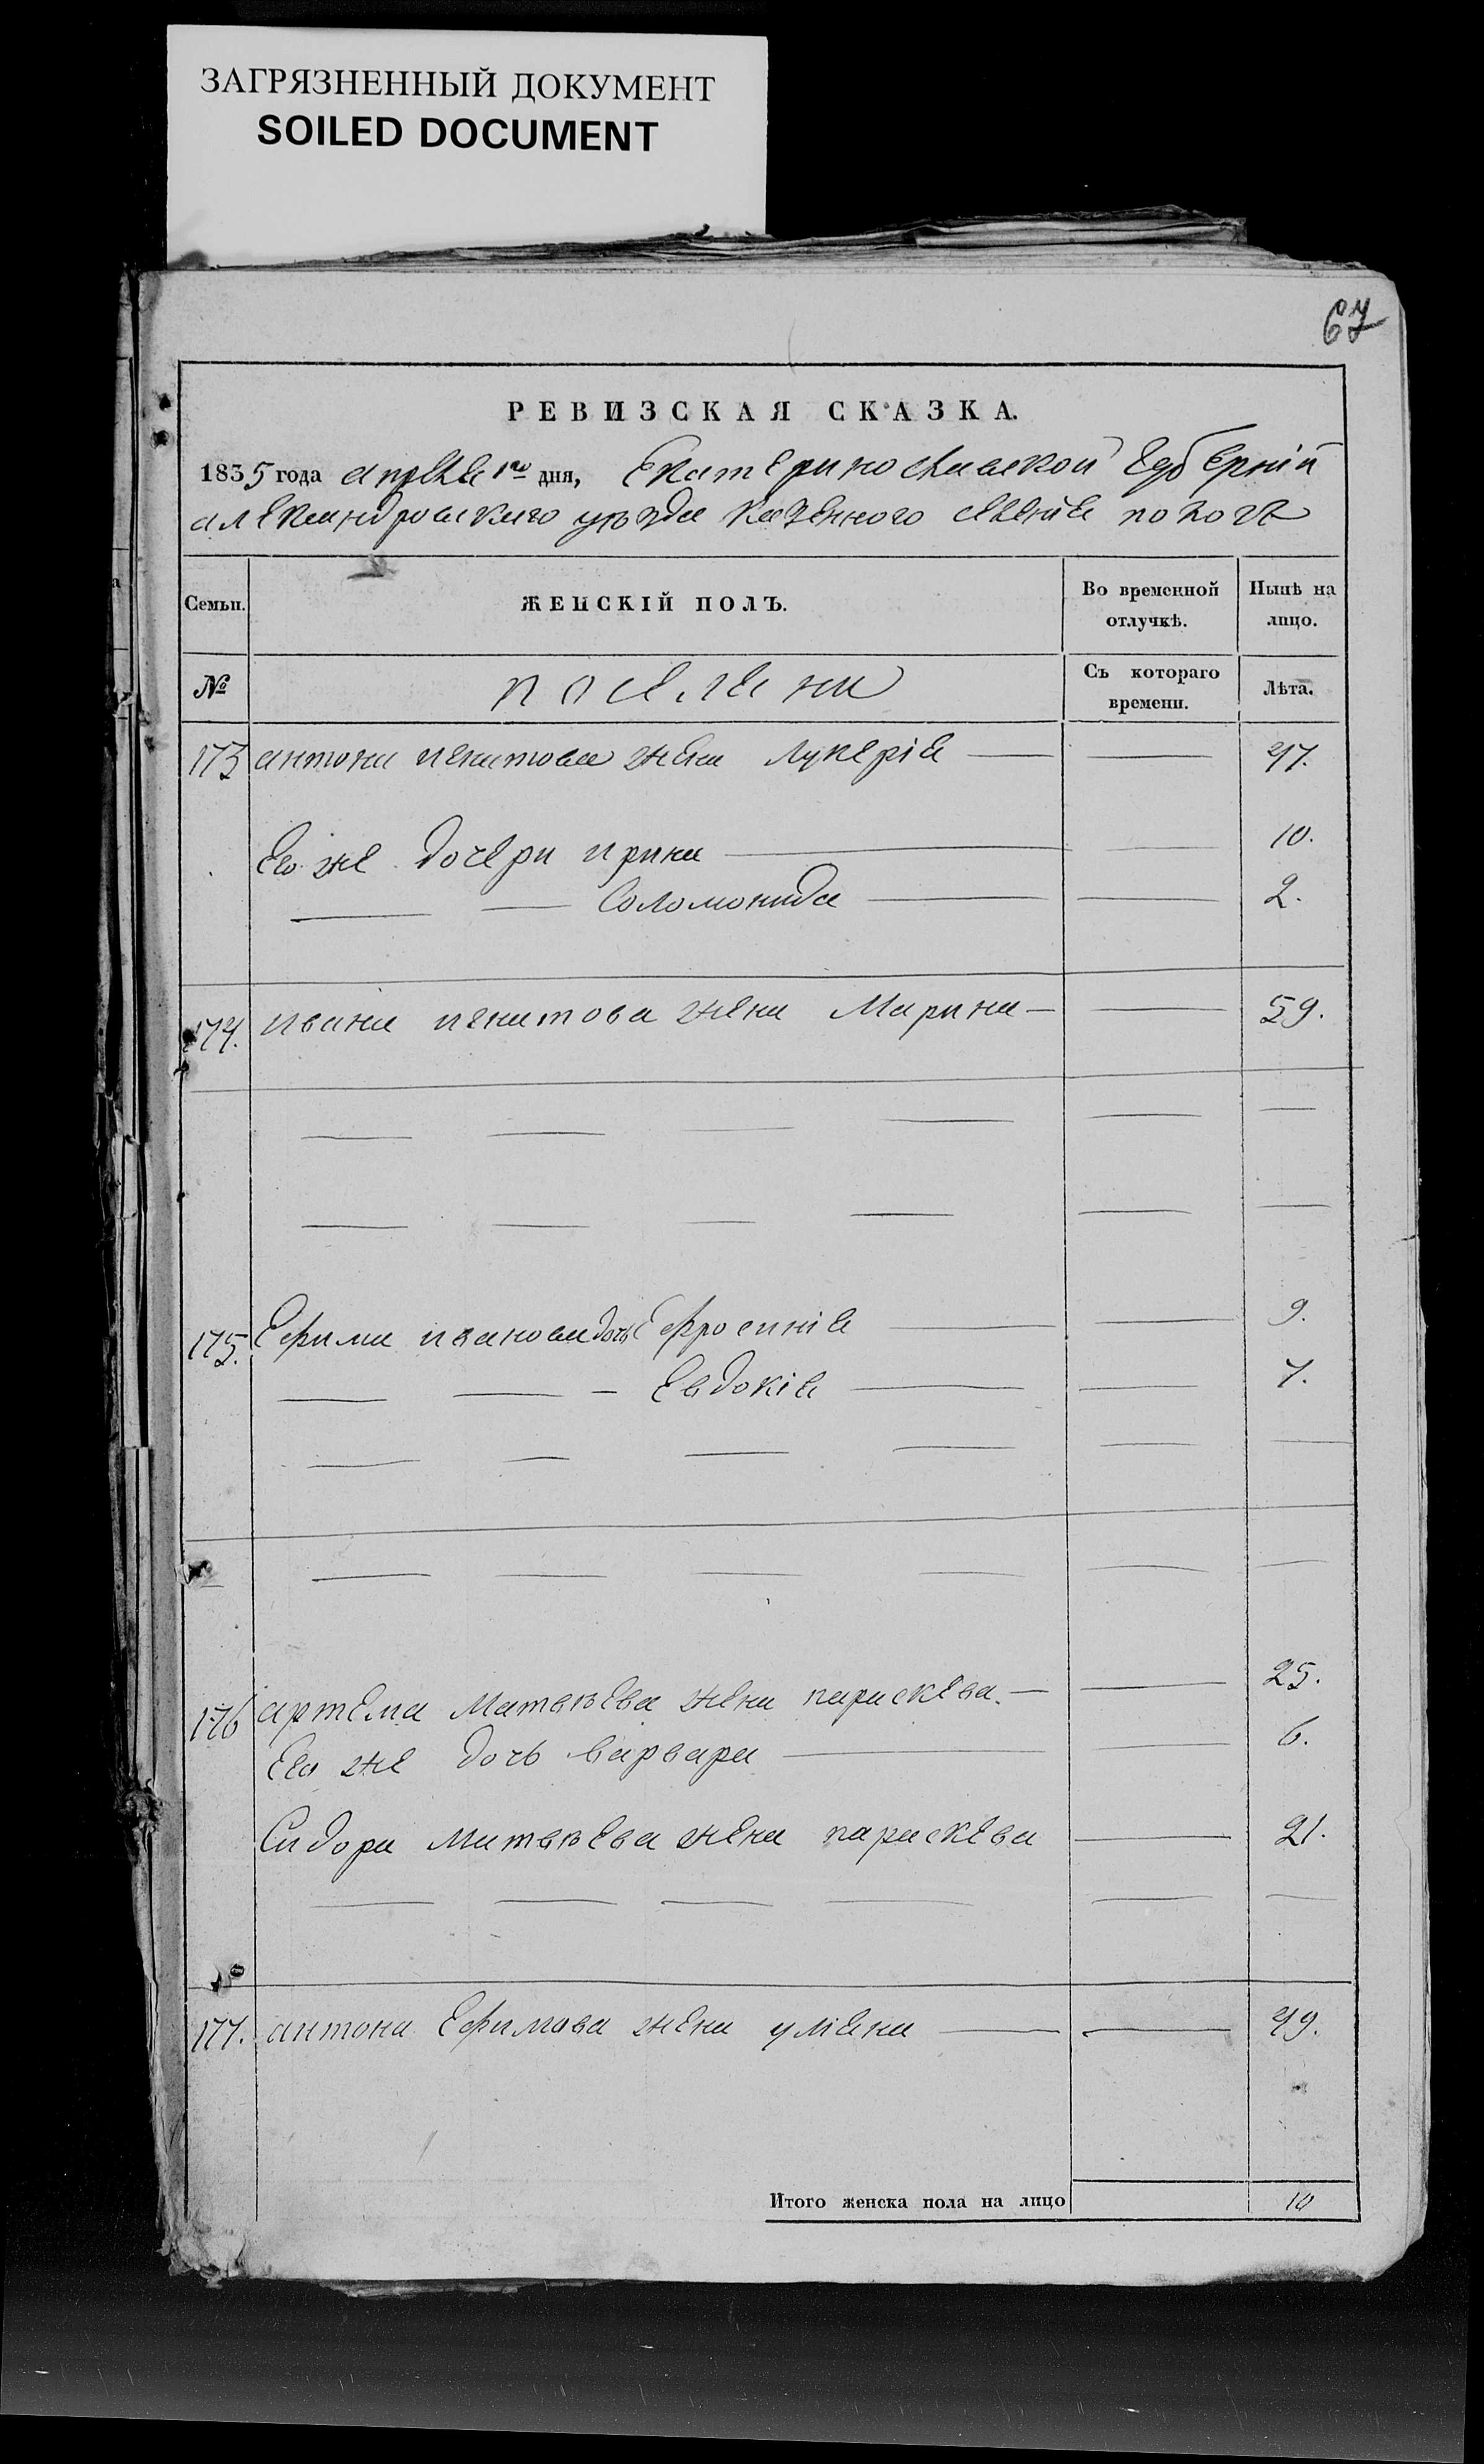 ЗАГРЯЗНЕННЫЙ ДОКУМЕНТ
SOILED DOCUMENT
67
РЕВИЗСКАЯ СКАЗКА.
1835 года апреля 1го дня, Екатеринославской Губерній
александровскаго уѣзда казенного селенія
Семьи. ЖЕНСКІЙ ПОЛЪ. Во временной отлучкѣ. Нынѣ на лицо.
№ поселяни Съ котораго времени. Лѣта.
173 антона игнатова жена Лукерія 47.
Его же дочери ирина 10.
Соломонида 2.
174. ивана игнатова жена Марина 59.
175. Ефима иванова дочь Ефросинія 9.
Евдокія 7.
176 артема Матвѣева жена параскева. 25.
Его же дочь варвара 6.
Сидора Матвѣева жена параскева 21.
177. антона Ефимова жена уліяна 49.
Итого женска пола на лицо 10